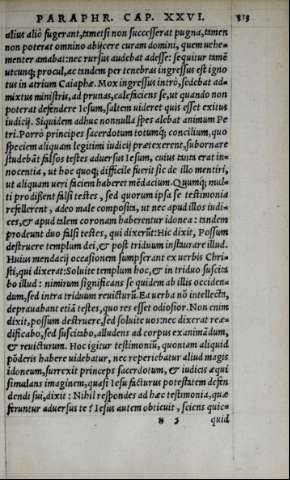 PARAPHR. CAP. XXVI. 813
alius aliò fugerant, tametsi non successerat pugna, tamen
non poterat omnino abijcere curam domini, quem uehe-
menter amabat: nec rursus audebat adesse: sequitur tamē
utcunq; procul, ac tandem per tenebras ingressus est igno
tus in atrium Caiaphæ. Mox ingressus intrò, sedebat ad-
mixtus ministris, ad prunas, calefaciens se, ut quando non
poterat defendere Iesum, saltem uideret quis esset exitus
iudicij. Siquidem adhuc nonnulla spes alebat animum Pe
tri. Porrò principes sacerdotum totumq; concilium, quo
speciem aliquam legitimi iudicij prætexerent, subornare
studebāt falsos testes aduersus Iesum, cuius tanta erat in-
nocentia, ut hoc quoq; difficile fuerit sic de illo mentiri,
ut aliquam ueri faciem haberet mēdacium. Quumq; mul-
ti prodissent falsi testes, sed quorum ipsa se testimonia
refellerent, adeo male composita, ut nec apud illos iudi-
ces, & apud talem coronam haberentur idonea: tandem
prodeunt duo falsi testes, qui dixerūt: Hic dixit, Possum
destruere templum dei, & post triduum instaurare illud.
Huius mendacij occasionem sumpserant ex uerbis Chri-
sti, qui dixerat: Soluite templum hoc, & in triduo suscita
bo illud: nimirum significans se quidem ab illis occiden-
dum, sed intra triduum reuicturū. Ea uerba nō intellecta,
deprauabant etiā testes, quo res esset odiosior. Non enim
dixit, possum destruere, sed soluite uos: nec dixerat reæ-
dificabo, sed suscitabo, alludens ad corpus exanimādum,
& reuicturum. Hoc igitur testimoniū, quoniam aliquid
pōderis habere uidebatur, nec reperiebatur aliud magis
idoneum, surrexit princeps sacerdotum, & iudicis æqui
simulans imaginem, quasi Iesu facturus potestatem defen
dendi sui, dixit: Nihil respondes ad hæc testimonia, quæ
feruntur aduersus te? Iesus autem obticuit, sciens quic-
quid